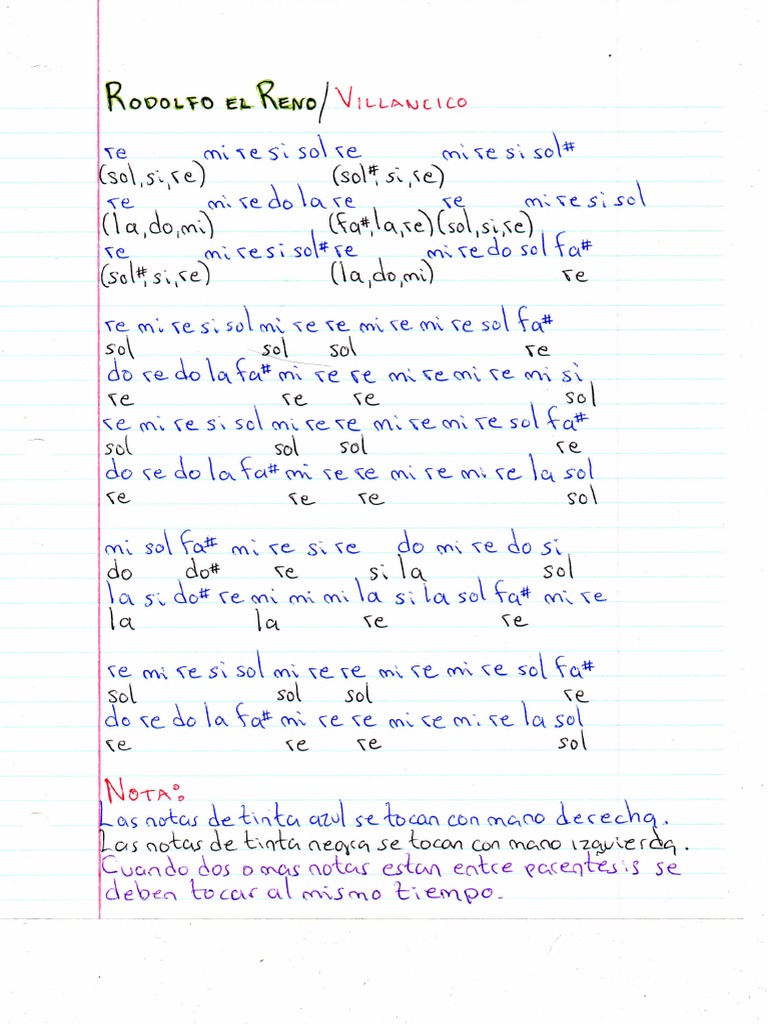 RODOLFO EL RENO/VILLANCICO
re mi re si sol re mi re si sol#
(sol, si, re) (sol#, si, re)
re mi re do la re re mi re si sol
(la, do, mi) (fa#, la, re) (sol, si, re)
re mi re si sol# re mi re do sol fa#
(sol#, si, re) (la, do, mi) re
re mi re si sol mi re re mi re mi re sol fa#
sol sol sol re
do re do la fa# mi re re mi re mi re mi si
re re re sol
re mi re si sol mi re re mi re mi re sol fa#
sol sol sol re
do re do la fa# mi re re mi re mi re la sol
re re re sol
mi sol fa# mi re si re do mi re do si
do do# re si la sol
la si do# re mi mi mi la si la sol fa# mi re
la la re re
re mi re si sol mi re re mi re mi re sol fa#
sol sol sol re
do re do la fa# mi re re mi re mi re la sol
re re re sol
NOTA:
Las notas de tinta azul se tocan con mano derecha.
Las notas de tinta negra se tocan con mano izquierda.
Cuando dos o mas notas estan entre parentesis se
deben tocar al mismo tiempo.